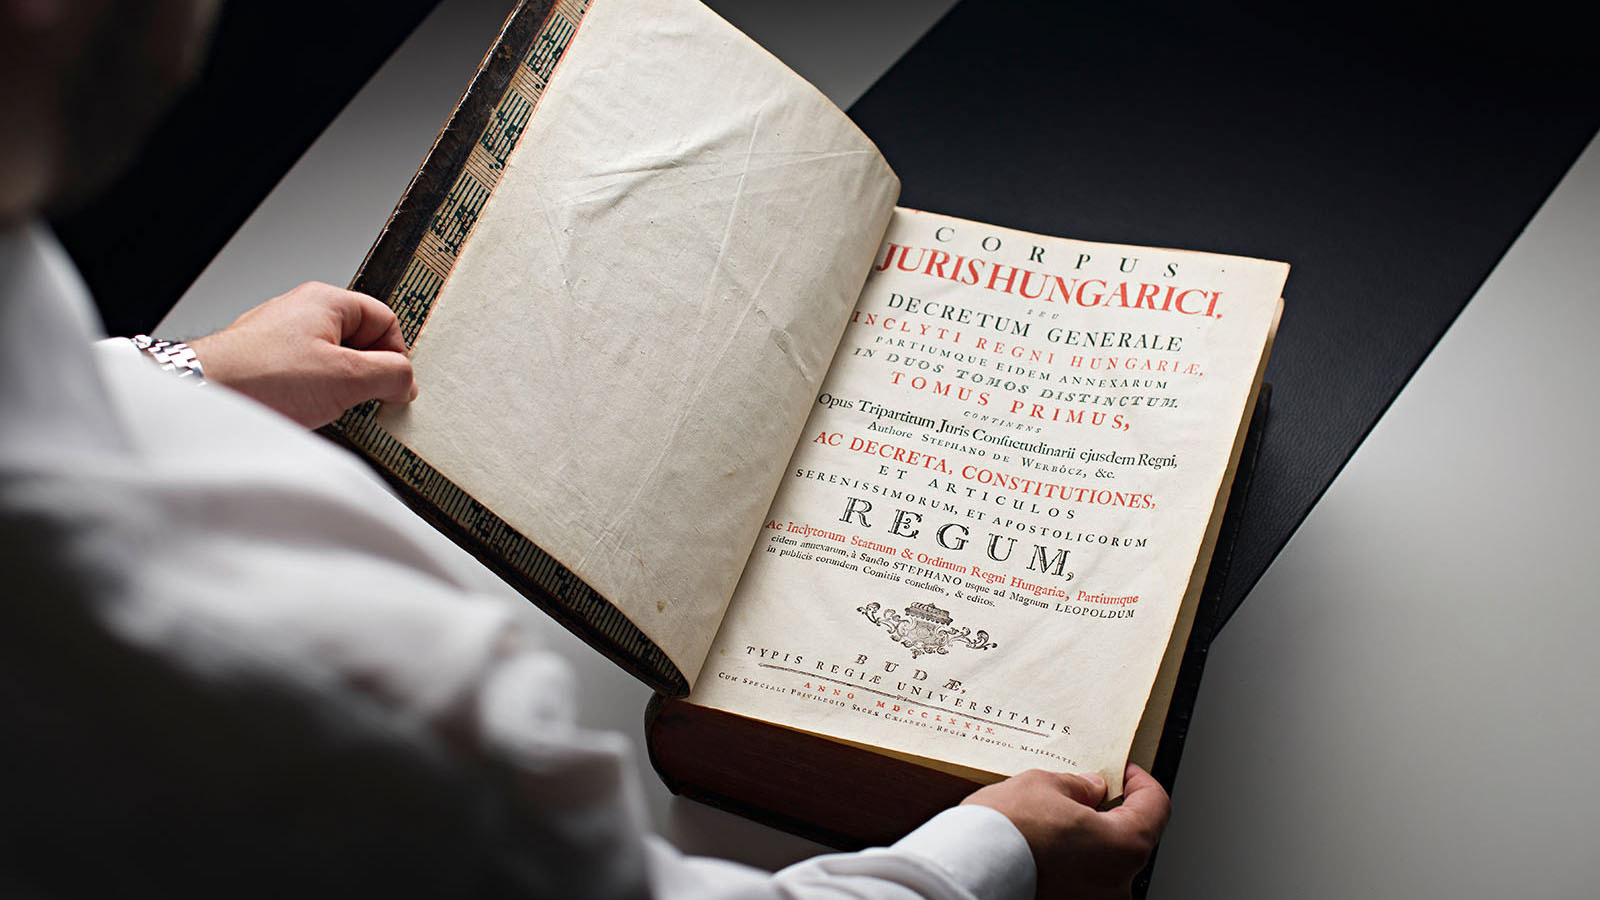 CORPUS
JURIS HUNGARICI,
SEU
DECRETUM GENERALE
INCLYTI REGNI HUNGARIÆ,
PARTIUMQUE EIDEM ANNEXARUM
IN DUOS TOMOS DISTINCTUM.
TOMUS PRIMUS,
CONTINENS
Opus Tripartitum Juris Consuetudinarii ejusdem Regni,
Authore STEPHANO DE WERBÖCZ, &c.
AC DECRETA, CONSTITUTIONES,
ET ARTICULOS
SERENISSIMORUM, ET APOSTOLICORUM
REGUM,
Ac Inclytorum Statuum & Ordinum Regni Hungariæ, Partiumque
eidem annexarum, à Sancto STEPHANO usque ad Magnum LEOPOLDUM
in publicis eorundem Comitiis conclusos, & editos.
BUDÆ,
TYPIS REGIÆ UNIVERSITATIS.
ANNO MDCCLXXIX.
CUM SPECIALI PRIVILEGIO SACRÆ CÆSAREO-REGIÆ APOSTOL. MAJESTATIS.